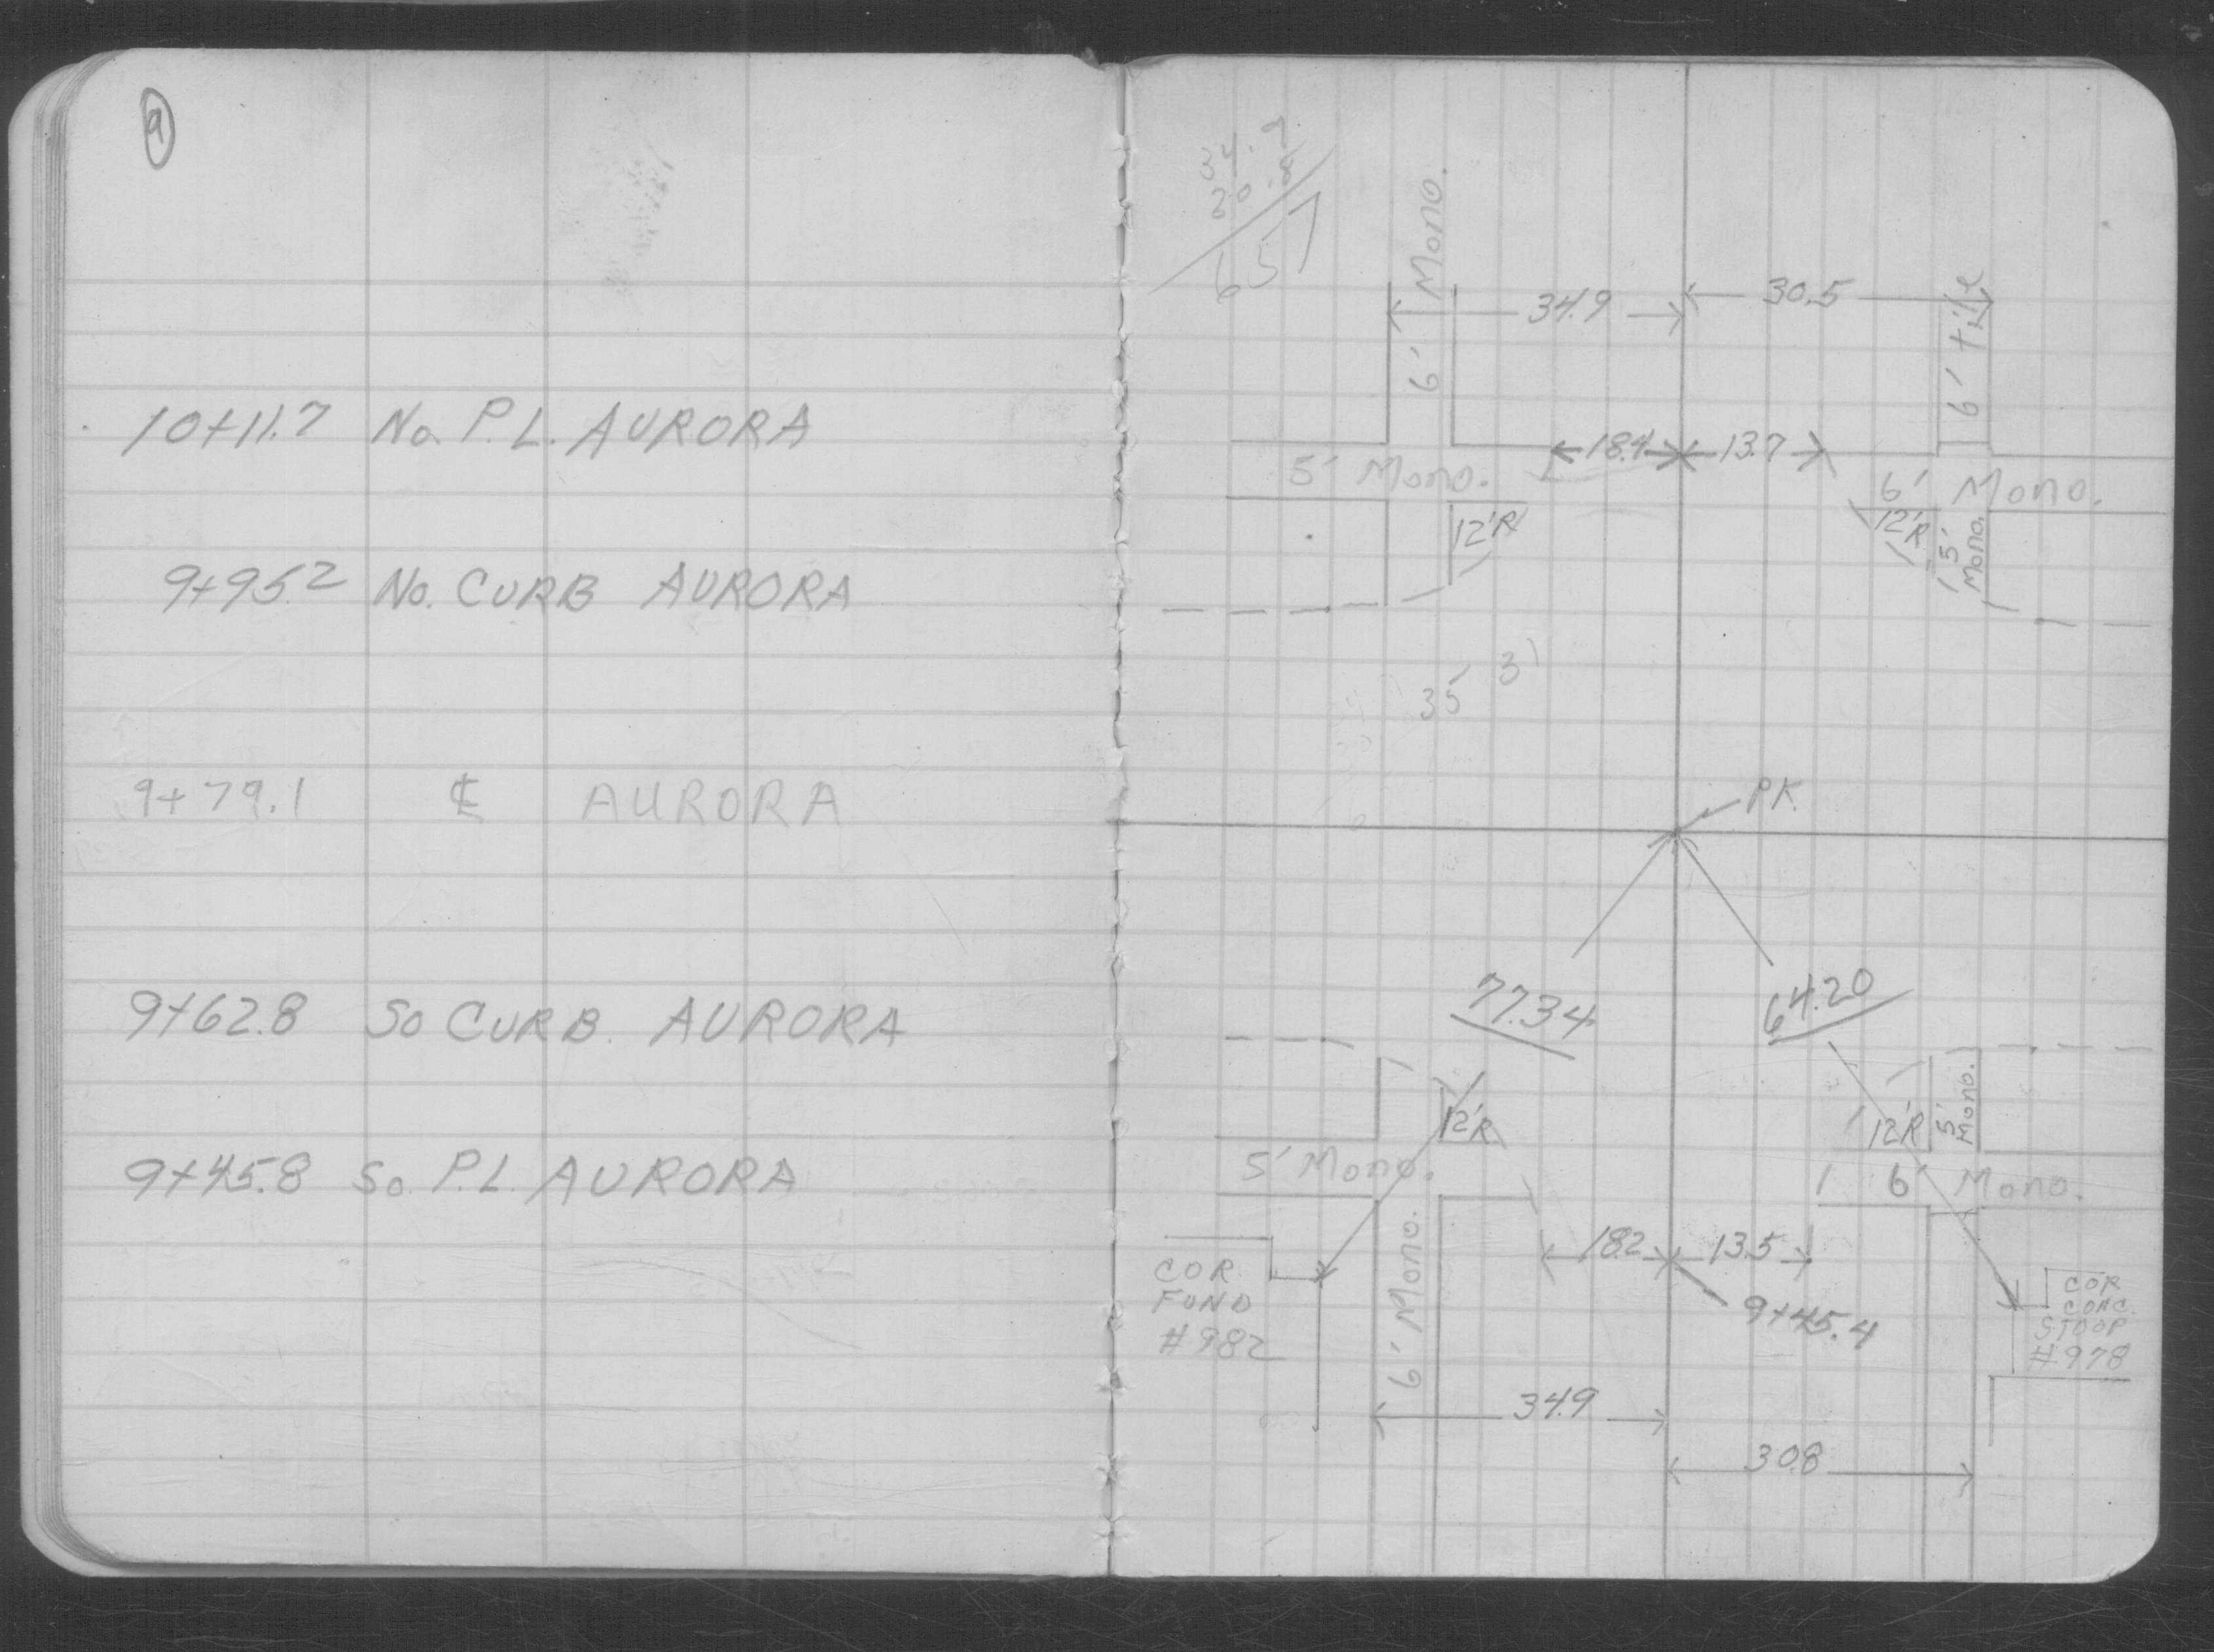 9
10+11.7 No. P.L. AURORA
9+95.2 No. CURB AURORA
9+79.1 ℄ AURORA
9+62.8 So CURB AURORA
9+45.8 So. P.L. AURORA
34.9
657
6' Mono.
34.9
30.5
6' tile
18.4
13.7
5' Mono.
6' Mono.
12'R
12'R
5' Mono.
35
3
PK
77.34
64.20
12'R
12'R
5' Mono.
5' Mono.
6' Mono.
18.2
13.5
9+45.4
COR
FUND
#982
6' Mono.
COR
CONC.
STOOP
#978
34.9
30.8